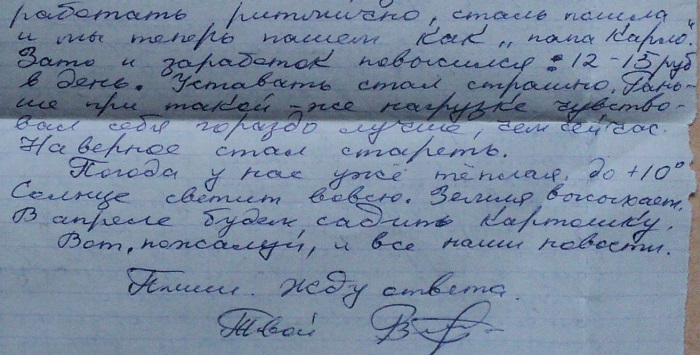 работать ритмично, сталь пошла
и мы теперь пашем как „папа Карло".
Зато и заработок повысился: 12-15 руб
в день. Уставать стал страшно. Рань-
ше при такой-же нагрузке чувство-
вал себя гораздо лучше, чем сейчас.
Наверное стал стареть.
Погода у нас уже тёплая, до +10°
Солнце светит вовсю. Земля высыхает.
В апреле будем садить картошку.
Вот, пожалуй, и все наши новости.
Пиши. Жду ответа.
Твой